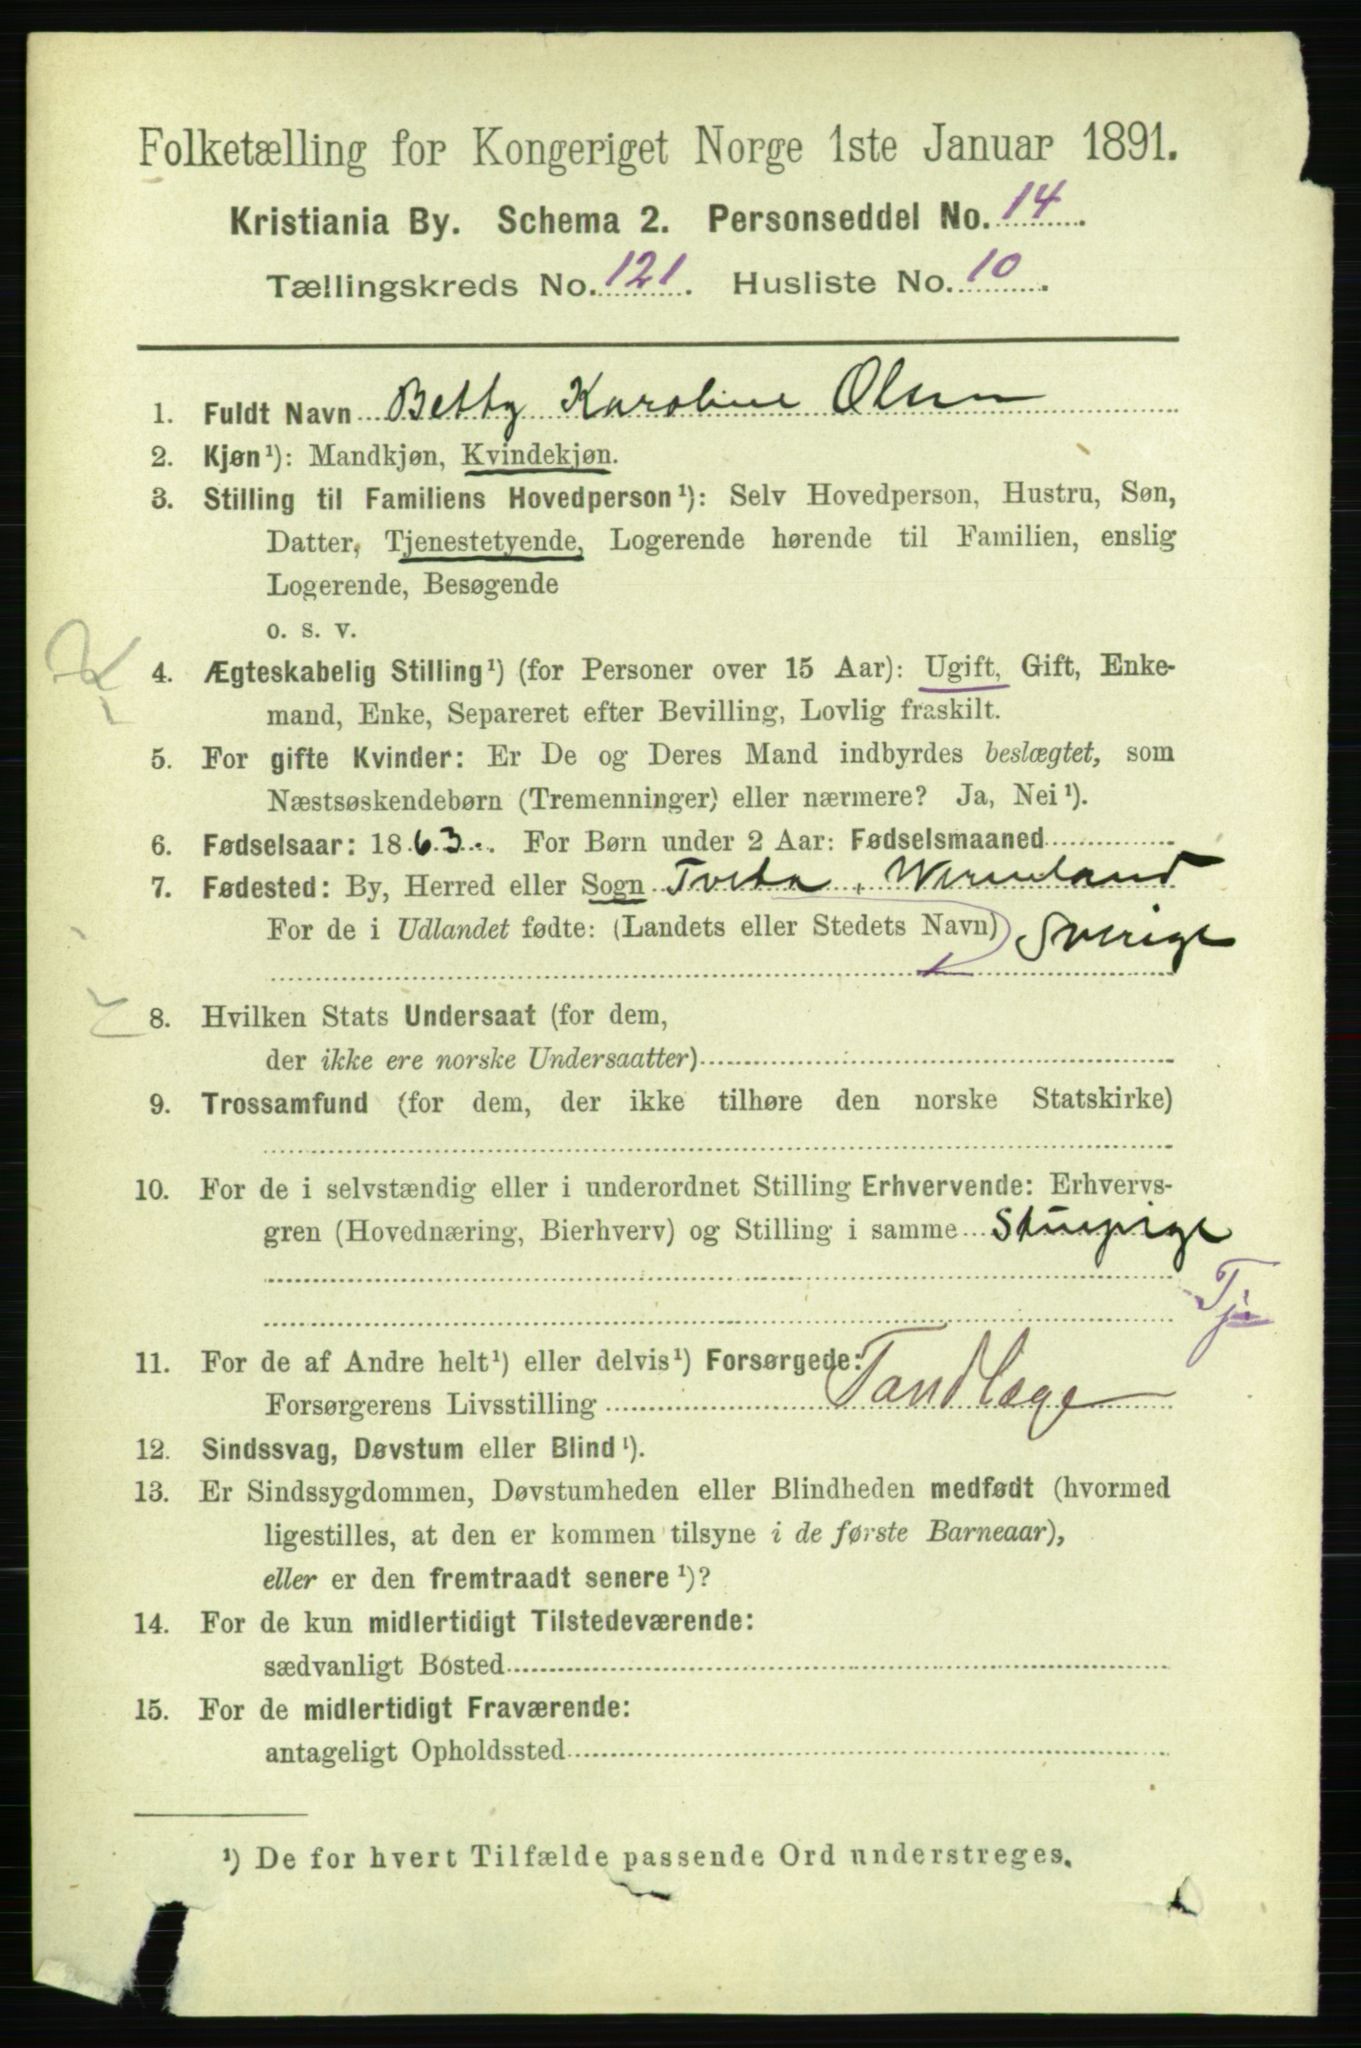 Folketælling for Kongeriget Norge 1ste Januar 1891.
Kristiania By. Schema 2. Personseddel No. 14
Tællingskreds No. 121. Husliste No. 10.
1. Fuldt Navn Betty Karoline Olsen
2. Kjøn¹): Mandkjøn, Kvindekjøn.
3. Stilling til Familiens Hovedperson¹): Selv Hovedperson, Hustru, Søn,
Datter, Tjenestetyende, Logerende hørende til Familien, enslig
Logerende, Besøgende
o. s. v.
4. Ægteskabelig Stilling¹) (for Personer over 15 Aar): Ugift, Gift, Enke-
mand, Enke, Separeret efter Bevilling, Lovlig fraskilt.
5. For gifte Kvinder: Er De og Deres Mand indbyrdes beslægtet, som
Næstsøskendebørn (Tremenninger) eller nærmere? Ja, Nei¹).
6. Fødselsaar: 1863. For Børn under 2 Aar: Fødselsmaaned
7. Fødested: By, Herred eller Sogn Tveta, Wermland
For de i Udlandet fødte: (Landets eller Stedets Navn) Sverige
8. Hvilken Stats Undersaat (for dem,
der ikke ere norske Undersaatter)
9. Trossamfund (for dem, der ikke tilhøre den norske Statskirke)
10. For de i selvstændig eller i underordnet Stilling Erhvervende: Erhvervs-
gren (Hovednæring, Bierhverv) og Stilling i samme Stuepige
Tj
11. For de af Andre helt¹) eller delvis¹) Forsørgede:
Forsørgerens Livsstilling Tandlæge
12. Sindssvag, Døvstum eller Blind¹).
13. Er Sindssygdommen, Døvstumheden eller Blindheden medfødt (hvormed
ligestilles, at den er kommen tilsyne i de første Barneaar),
eller er den fremtraadt senere¹)?
14. For de kun midlertidigt Tilstedeværende:
sædvanligt Bosted
15. For de midlertidigt Fraværende:
antageligt Opholdssted
¹) De for hvert Tilfælde passende Ord understreges.